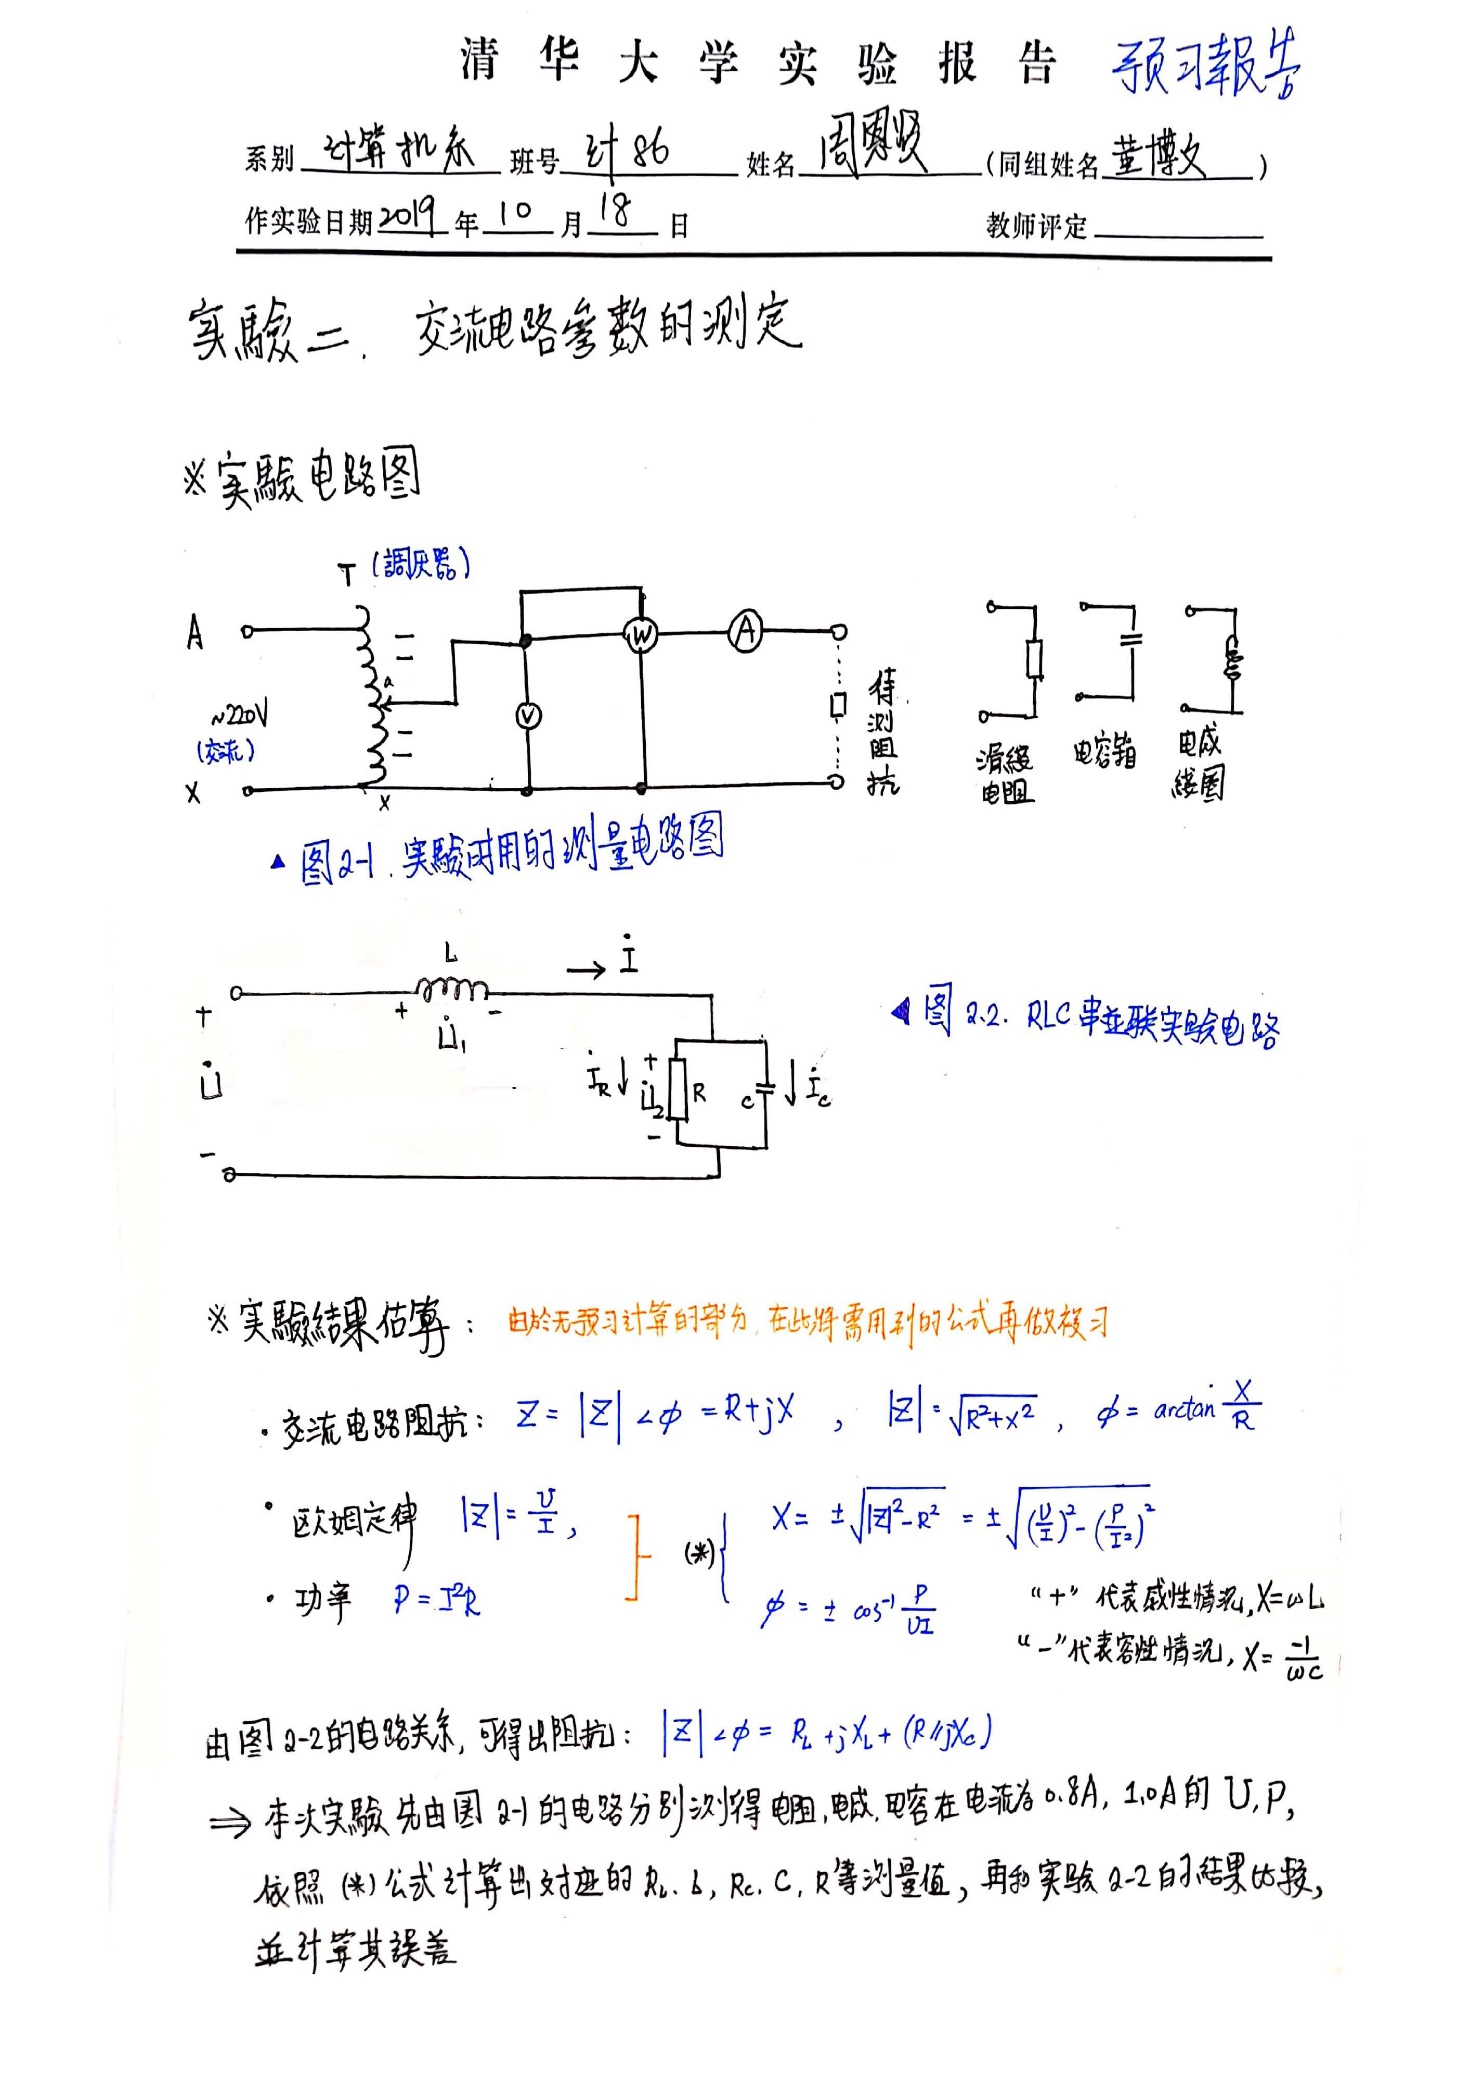 清华大学实验报告 预习報告
系别 计算机系 班号 计86 姓名 周恩贤 (同组姓名 董博文)
作实验日期 2019 年 10 月 18 日 教师评定
实驗二. 交流电路参数的测定
※实驗电路图
T (調压器)
A
a
W
A
~220V
(交流)
V
待测阻抗
X
x
滑线电阻
电容箱
电感线圈
▲ 图2-1. 実驗时用的测量电路图
L
→ İ
+ + U̇₁ -
U̇
İR↓ + U̇₂ - R C ↓İc
-
◀ 图 2.2. RLC 串並联实验电路
※ 实驗結果估算: 由於无预习计算的部分, 在此将需用到的公式再做複习
· 交流电路阻抗: Z = |Z|∠φ = R+jX , |Z| = √(R²+X²) , φ = arctan X/R
· 欧姆定律 |Z| = U/I , (*) X = ±√(|Z|²-R²) = ±√((U/I)²-(P/I²)²)
· 功率 P = I²R φ = ± cos⁻¹ P/UI
“+” 代表感性情况, X=ωL
“-”代表容性情况, X= -1/ωC
由图2-2的电路关系, 可得出阻抗: |Z|∠φ = R_L + jX_L + (R//jXc)
⇒ 本次实驗先由图2-1的电路分别测得电阻,电感,电容在电流为0.8A, 1.0A的 U,P,
依照 (*)公式计算出对应的 R_L. L, Rc. C, R等测量值, 再和实验2-2的結果比較,
並计算其误差